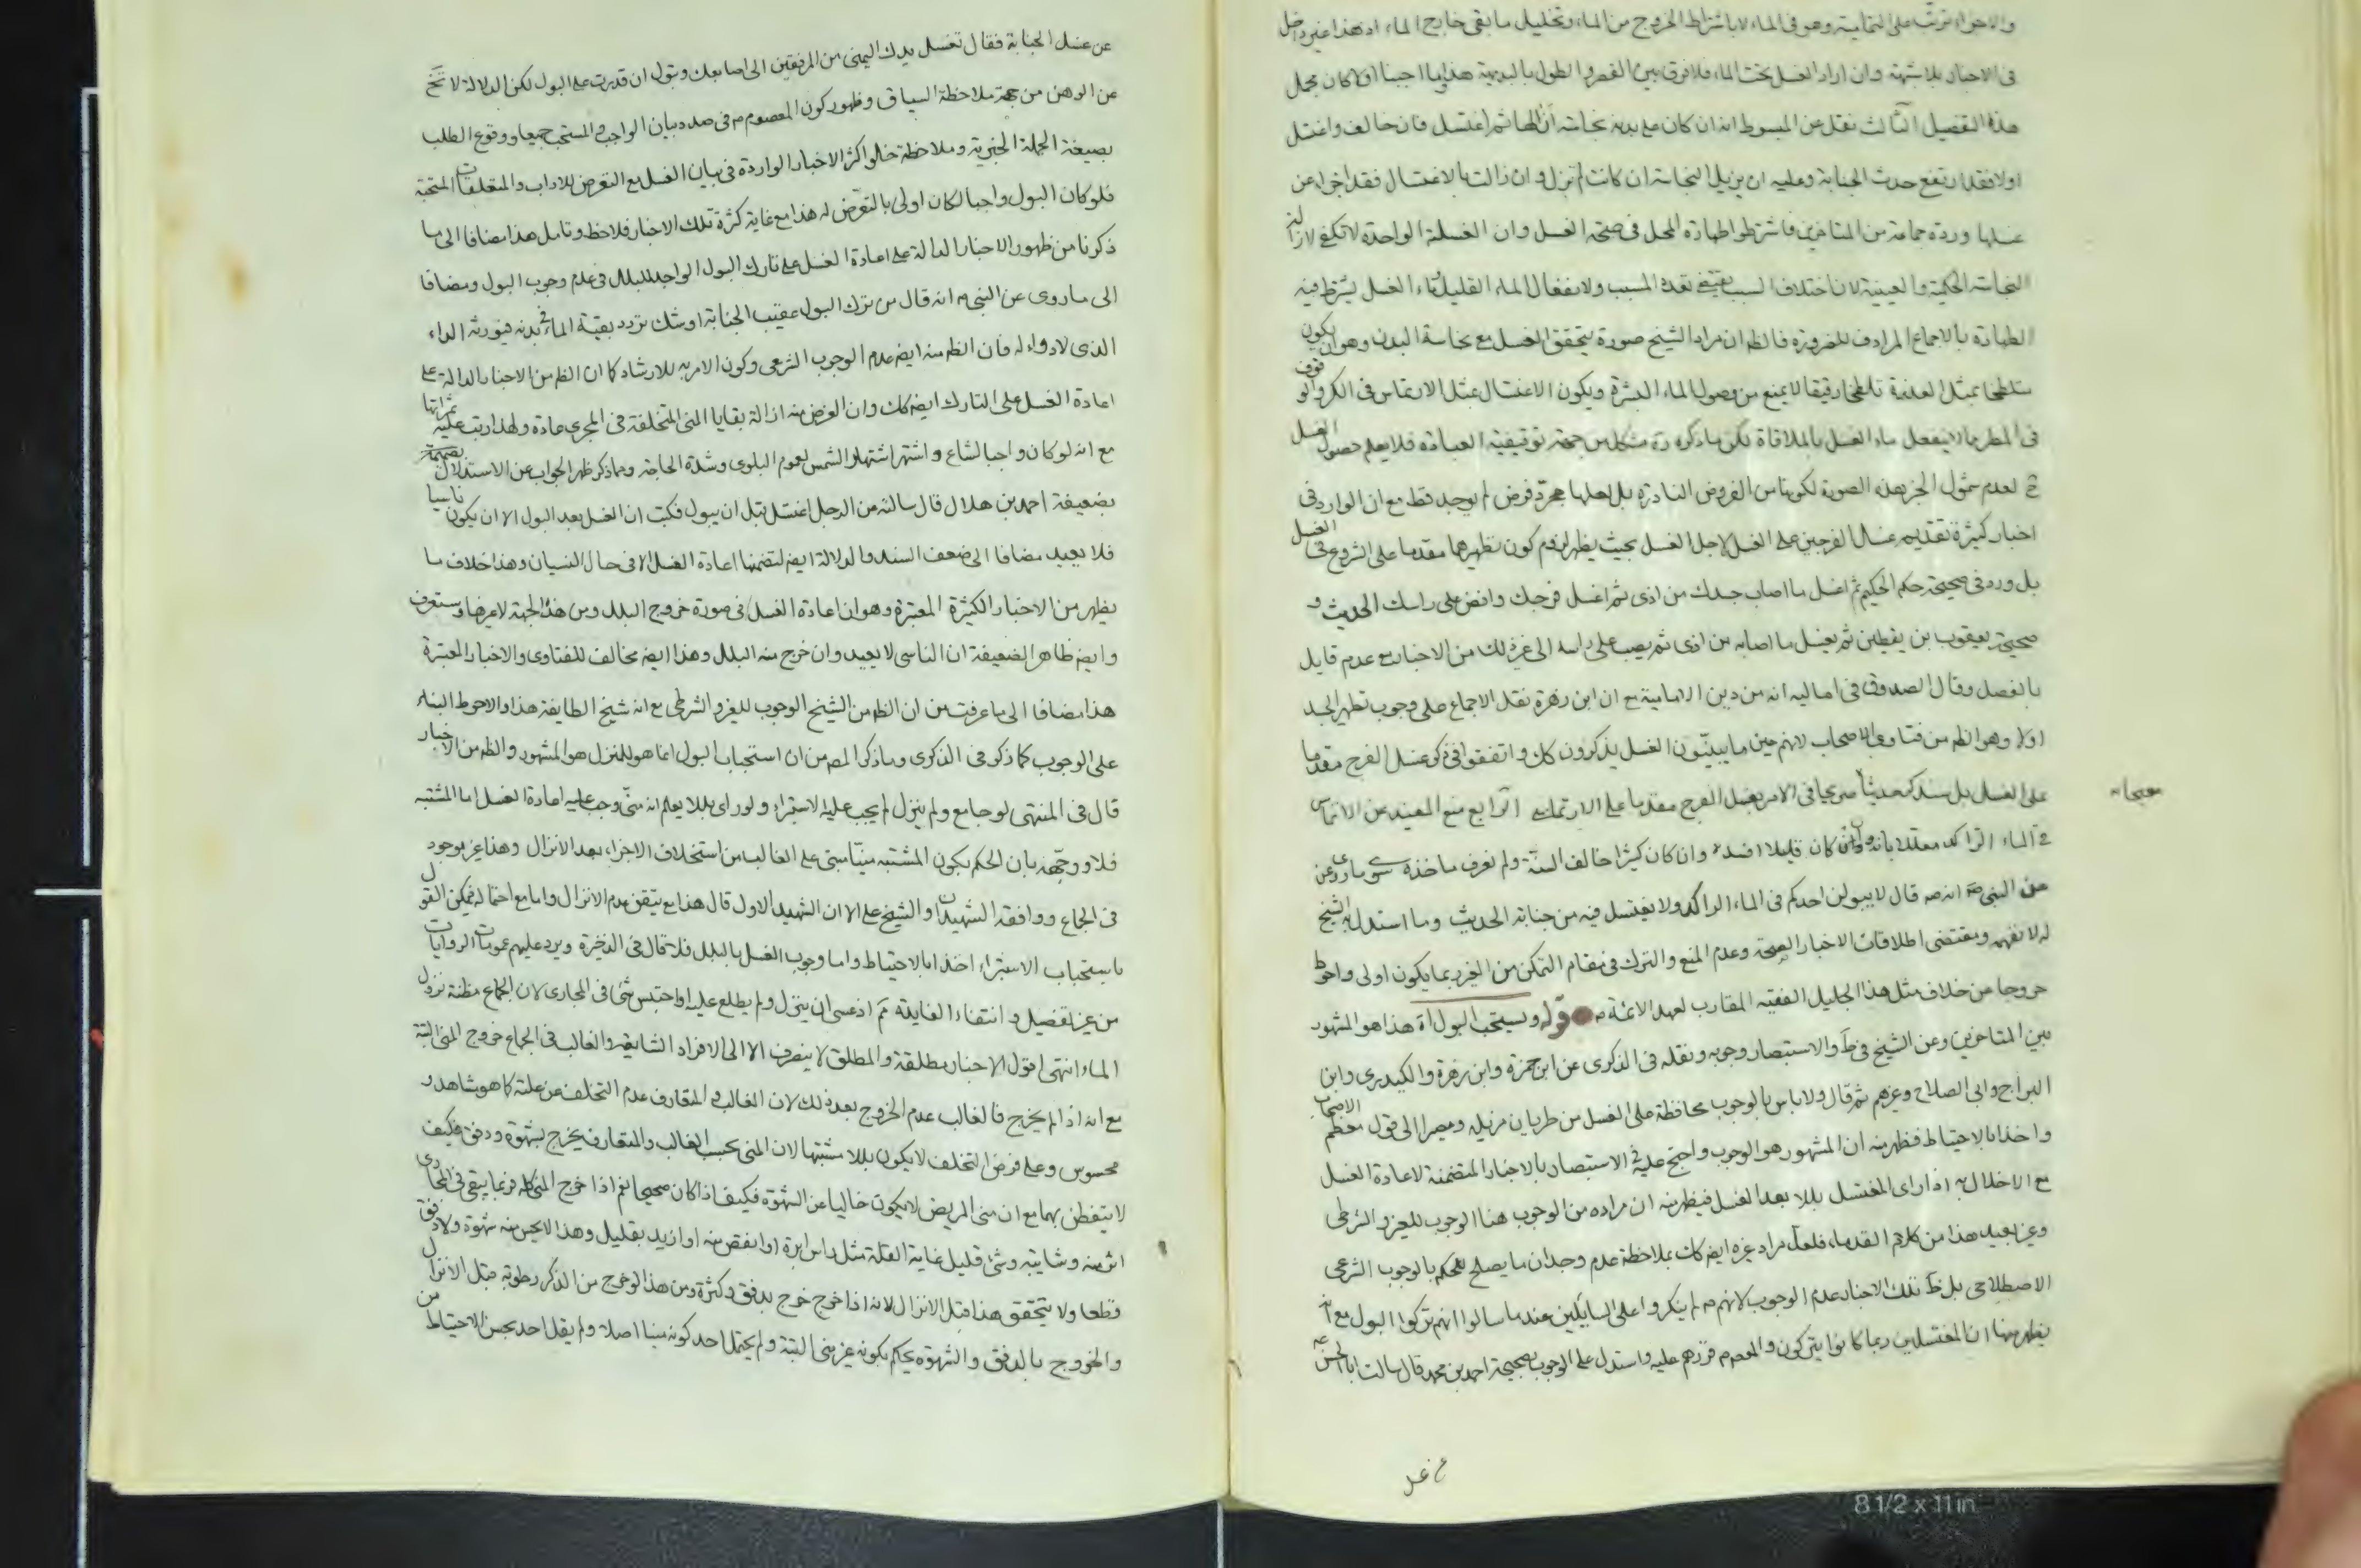 والاجزاء ترتب على النهاية وهو فى الماء لا باشتراط الخروج من الماء وتخليل ما بقى خارج الماء اد هذا غير داخل
فى الاخبار بلا شبهة وان اراد الغسل تحت الماء فلا فرق بين القصر والطول بالبديهة هذا اجبنا اولا كان مجمل
هذه التفصيل الثالث نقل عن المبسوط انه ان كان على بدنه نجاسة ازالها ثم اغتسل فان خالف واغتسل
اولا فقد ارتفع حدث الجنابة وعليه ان يزيل النجاسة ان كانت لم تزل وان زالت بالاغتسال فقد اجزاء عن
غسلها ورده جماعة من المتاخرين فاشترطوا طهارة المحل فى صحة الغسل وان الغسلة الواحدة لا تكفى لازالة
النجاسة الحكمية والعينية لان اختلاف السبب يقتضى تعدد المسبب ولانفعال الماء القليل وماء الغسل يشترط فيه
الطهارة بالاجماع المرادف للضرورة فالظ ان مراد الشيخ صورة يتحقق الغسل مع نجاسة البدن وهو ان يكون
متلطخا بمثل العذرة تلطخا رقيقا لا يمنع من وصول الماء البشرة ويكون الاغتسال بمثل الارتماس فى الكر والوقوف
فى المطر مما لا ينفعل ماء الغسل بالملاقاة لكن ما ذكره ره مشكل من جهة توقيفية العبادة فلا يعلم حصول الغسل
ح لعدم شمول الخبر هذه الصورة لكونها من الفروض النادرة بل لعلها مجرد فرض لم يوجد قط مع ان الوارد فى
اخبار كثيرة تقديم غسل الفرجين على الغسل لاجل الغسل بحيث يظهر لزوم كون تطهيرهما مقدما على الشروع فى الغسل
بل ورد فى صحيحة حكم الحكيم ثم اغسل ما اصاب جسدك من اذى ثم اغسل فرجك وافض على راسك الحديث و
صحيحة يعقوب بن يقطين ثم يغسل ما اصابه من اذى ثم يصب على راسه الى غير ذلك من الاخبار مع عدم قايل
بالفصل وقال الصدوق فى اماليه انه من دين الامامية مع ان ابن زهرة نقل الاجماع على وجوب تطهير الجسد
اولا وهو الظ من فتاوى الاصحاب لانهم حين ما يبيّنون الغسل يذكرون كك واتفقوا فى ذكر غسل الفرج مقدما
على الغسل بل سنذكر حديثا صريحا فى الامر بغسل الفرج مقدما على الارتماسى الرابع منع المفيد عن الارتماس
صحيحا
فى الماء الراكد معللا بانه ان كان قليلا افسده وان كان كثيرا خالف السنة ولم نعرف ماخذه سوى ما روى عن
عن النبى ص انه ص قال لا يبولن احدكم فى الماء الراكد ولا يغتسل فيه من جنابة الحديث وما استدل به الشيخ
له لا نفهمه ومقتضى اطلاقات الاخبار الصحة وعدم المنع والترك فى مقام التمكن من الغير ربما يكون اولى واحوط
خروجا من خلاف مثل هذا الجليل الفقيه المقارب لعهد الائمة م قوله ويستحب البول اه هذا هو المشهور
بين المتاخرين وعن الشيخ فى ط والاستبصار وجوبه ونقله فى الذكرى عن ابن حمزة وابن زهرة والكيدرى وابن
البراج وابى الصلاح وغيرهم ثم قال ولا باس بالوجوب محافظة على الغسل من طريان مزيله ومصيرا الى قول معظم الاصحاب
واخذا بالاحتياط فظهر منه ان المشهور هو الوجوب واحتج عليه فى الاستبصار بالاخبار المتضمنة لاعادة الغسل
مع الاخلال به اذا راى المغتسل بللا بعد الغسل فيظهر منه ان مراده من الوجوب هنا الوجوب للغير والشرطى
وغير بعيد هذا من كلام القدماء فلعل مراد غيره ايض كك بملاحظة عدم وجدان ما يصلح للحكم بالوجوب الشرعى
الاصطلاحى بل ظ تلك الاخبار عدم الوجوب لانهم م لم ينكروا على السايلين عند ما سالوا انهم تركوا البول مع انه
يظهر منها ان المغتسلين ربما كانوا يتركون والمعصوم م قررهم عليه واستدل على الوجوب بصحيحة احمد بن محمد قال سالت ابا الحسن ع
عن غسل
عن غسل الجنابة فقال تغسل يدك اليمنى من المرفقين الى اصابعك وتبول ان قدرت على البول لكن الدلالة لا تخ
عن الوهن من جهة ملاحظة السياق وظهور كون المعصوم م فى صدد بيان الواجب والمستحب جميعا ووقوع الطلب
بصيغة الجملة الخبرية وملاحظة خلو اكثر الاخبار الواردة فى بيان الغسل مع التعرض للاداب والمتعلقات المستحبة
فلو كان البول واجبا لكان اولى بالتعرض له هذا مع غاية كثرة تلك الاخبار فلاحظ وتامل هذا مضافا الى ما
ذكرنا من ظهور الاخبار الدالة على اعادة الغسل على تارك البول الواجد للبلل فى عدم وجوب البول ومضافا
الى ما روى عن النبى م انه قال من ترك البول عقيب الجنابة اوشك تردد بقية الماء فى بدنه فيورثه الداء
الذى لا دواء له فان الظ منه ايض عدم الوجوب الشرعى وكون الامر به للارشاد كما ان الظ من الاخبار الدالة على
اعادة الغسل على التارك ايض كك وان الغرض منه ازالة بقايا المنى المتخلفة فى المجرى عادة ولهذا رتب عليه ثمراتها
مع انه لو كان واجبا لشاع واشتهر اشتهار الشمس لعموم البلوى وشدة الحاجة ومما ذكر ظهر الجواب عن الاستدلال
بضعيفة احمد بن هلال قال سالته عن الرجل اغتسل قبل ان يبول فكتب ان الغسل بعد البول الا ان يكون ناسيا
فلا يعيد مضافا الى ضعف السند والدلالة ايض لتضمنها اعادة الغسل الا فى حال النسيان وهذا خلاف ما
يظهر من الاخبار الكثيرة المعتبرة وهو ان اعادة الغسل فى صورة خروج البلل ومن هذه الجهة لا غير وستعرف
وايض ظاهر الضعيفة ان الناسى لا يعيد وان خرج منه البلل وهذا ايض مخالف للفتاوى والاخبار المعتبرة
هذا مضافا الى ما عرفت من ان الظ من الشيخ الوجوب للغير والشرطى مع انه شيخ الطايفة هذا والاحوط البناء
على الوجوب كما ذكر فى الذكرى وما ذكر المص من ان استحباب البول انما هو للمنزل هو المشهور والظ من الاخبار
قال فى المنتهى لو جامع ولم ينزل لم يجب عليه الاستبراء ولو راى بللا يعلم انه منى وجب عليه اعادة الغسل اما المشتبه
فلا ووجهه بان الحكم بكون المشتبه منيّا مبنى على الغالب من استخلاف الاجزاء بعد الانزال وهذا غير موجود
فى الجماع ووافقه الشهيدان والشيخ على الا ان الشهيد الاول قال هذا مع تيقن عدم الانزال واما مع احتماله فيمكن القول
باستحباب الاستبراء اخذا بالاحتياط واما وجوب الغسل بالبلل فلا قال فى الذخيرة ويرد عليهم عمومات الروايات
من غير تفصيل وانتفاء الفايدة ثم اذ عسى ان ينزل ولم يطلع عليه او احتبس شئ فى المجارى لان الجماع مظنة نزول
الماء انتهى اقول الاخبار مطلقة والمطلق لا ينصرف الا الى الافراد الشايعة والغالب فى الجماع خروج المنى البتة
مع انه اذا لم يخرج فالغالب عدم الخروج بعد ذلك لان الغالب والمتعارف عدم التخلف عن علته كما هو مشاهد و
محسوس وعلى فرض التخلف لا يكون بللا مشتبها لان المنى بحسب الغالب والمتعارف يخرج بشهوة ودفق فكيف
لا يتفطن بهما مع ان منى المريض لا يكون خاليا عن الشهوة فكيف اذا كان صحيحا نعم اذا خرج المنى كله فربما يبقى فى المجارى
اثر منه وشايبة وشئ قليل غاية القلة مثل راس ابرة او انقص منه او ازيد بقليل وهذا لا يحس منه شهوة ولا دفق
قطعا ولا يتحقق هذا قبل الانزال لانه اذا خرج خرج بدفق وكثرة ومن هذا لو خرج من الذكر رطوبة قبل الانزال
والخروج بالدفق والشهوة يحكم بكونه غير منى البتة ولم يحتمل احد كونه منيا اصلا ولم يقل احد بحسن الاحتياط من
8 1/2 x 11 in